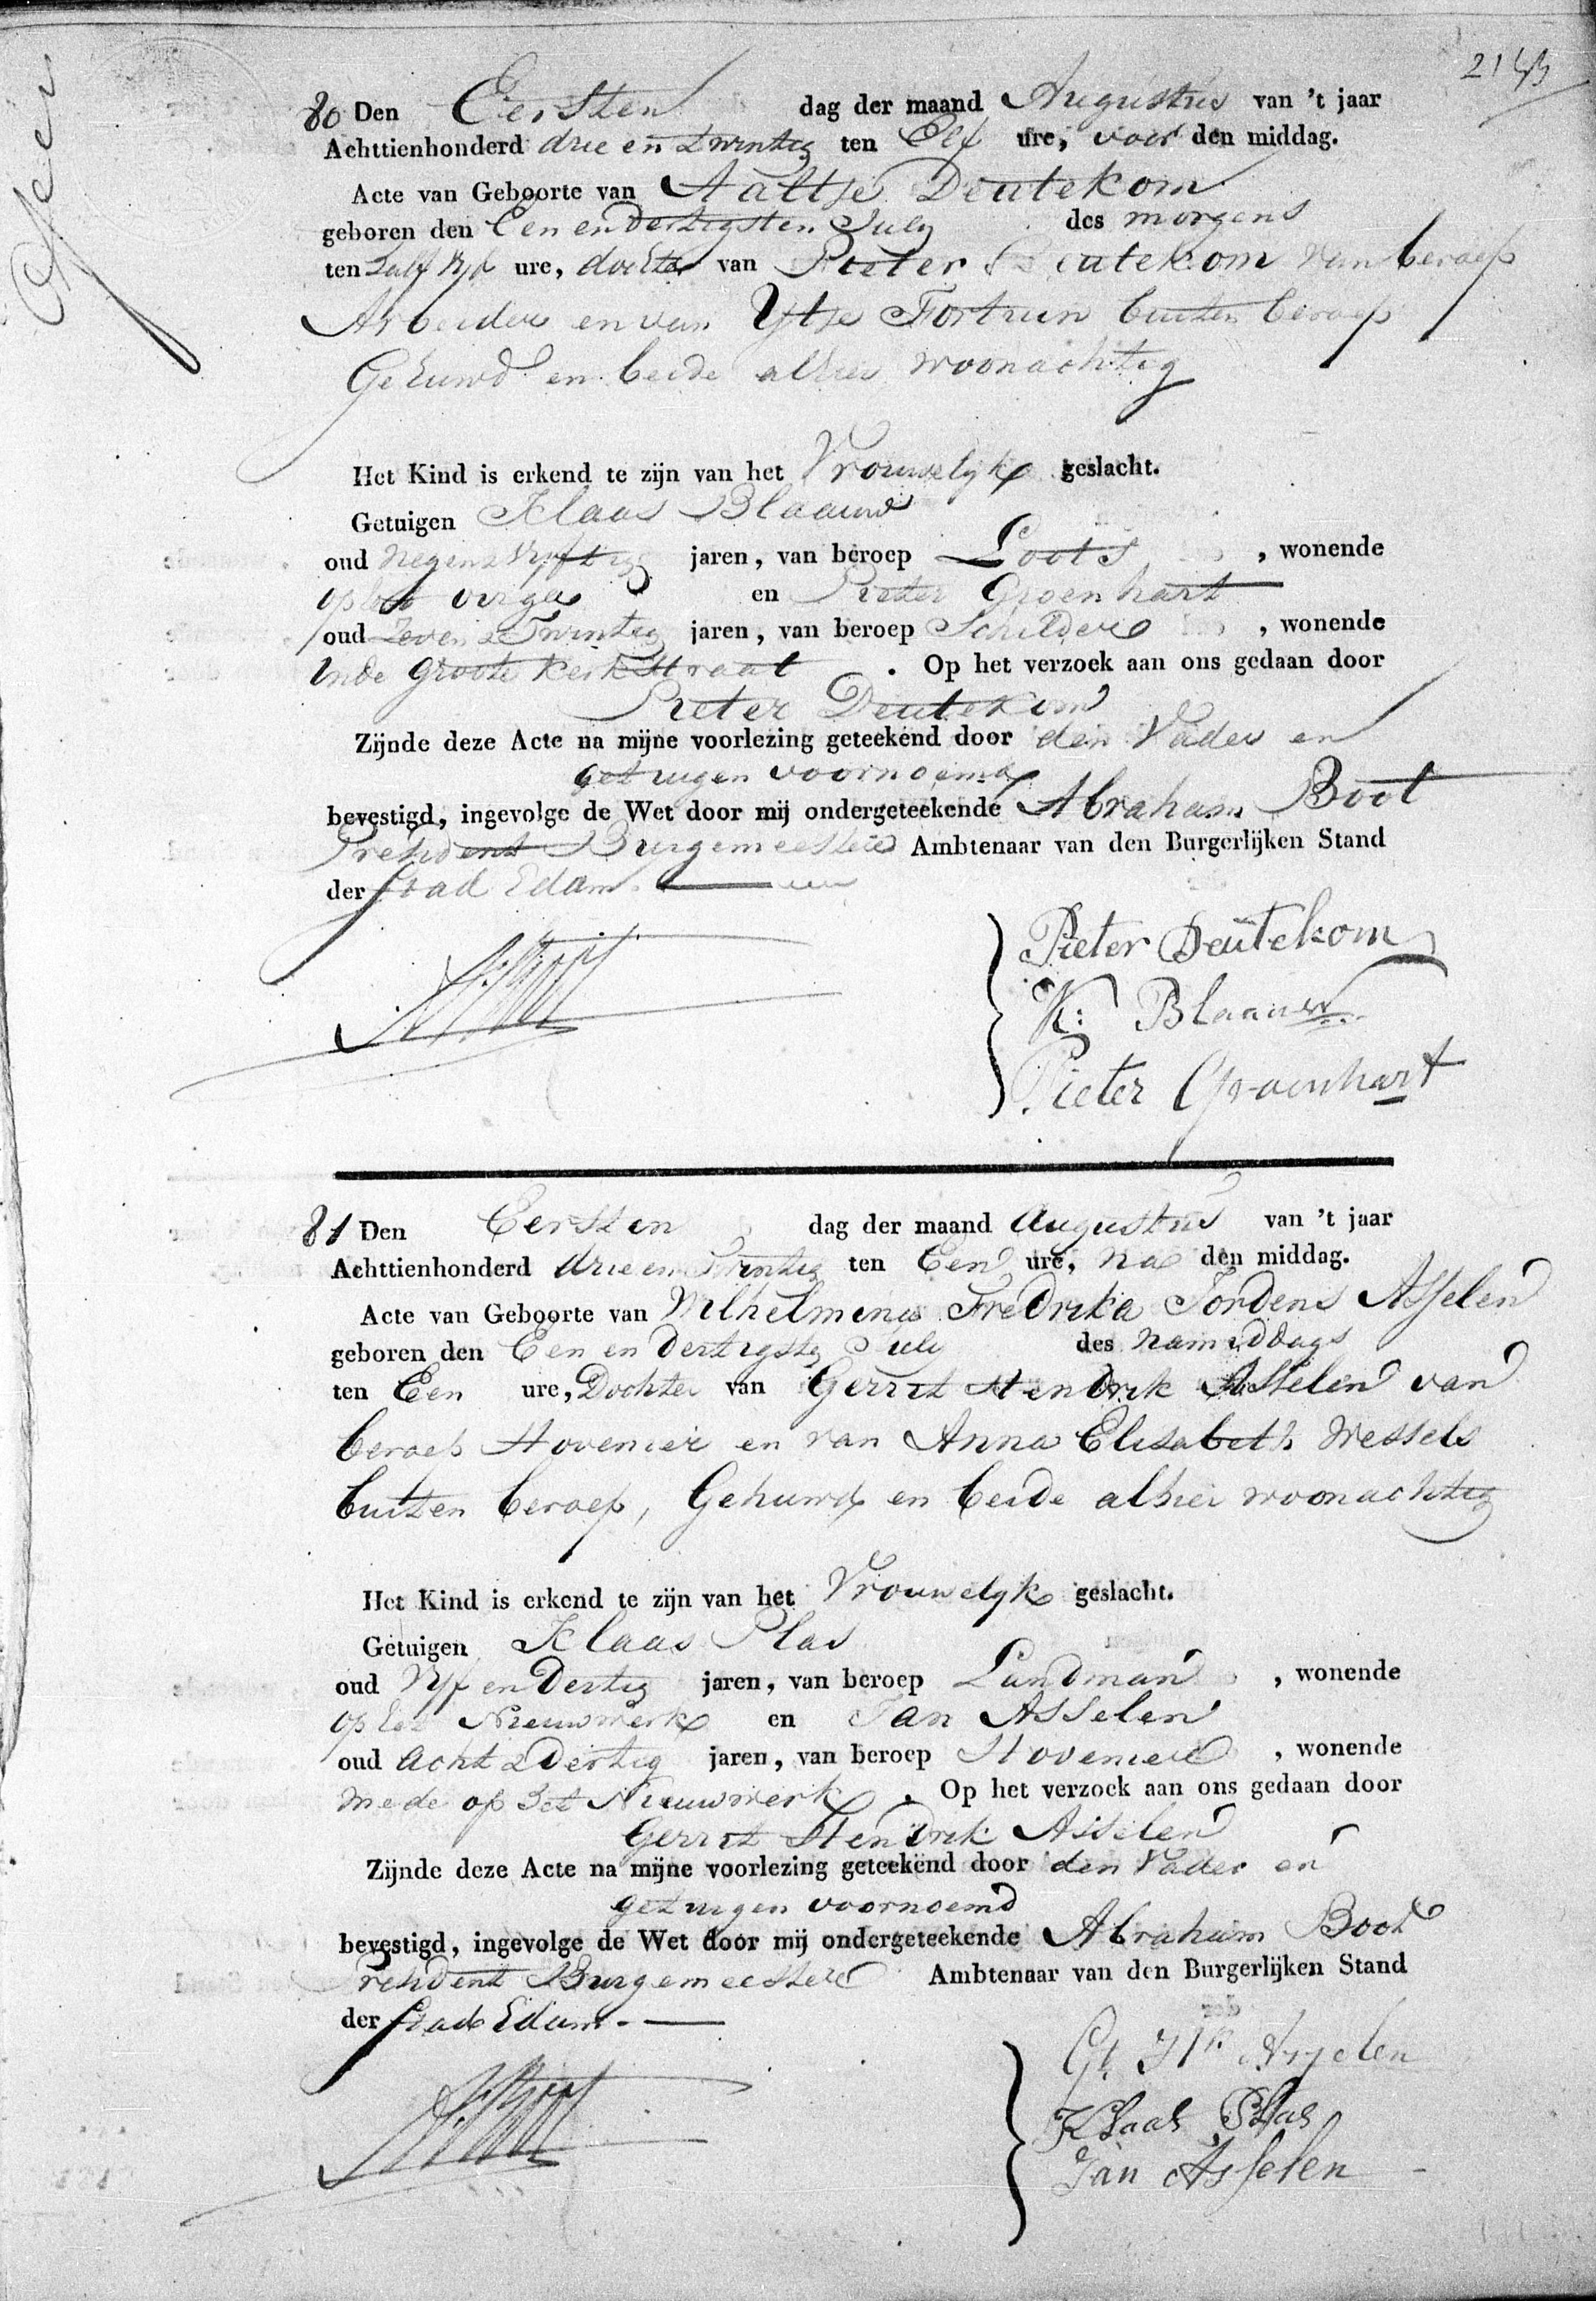 80 Den Eersten dag der maand Augustus van 't jaar
Achttienhonderd drie en twintig ten Elf ure, voor den middag.
Acte van Geboorte van Aaltje Deutekom
geboren den Een en dertigsten July des morgens
ten half vyf ure, dochter van Pieter Deutekom van beroep
Arbeider en van Ytje Fortuin buiten beroep
Gehuwd en beide alhier woonachtig
Het Kind is erkend te zijn van het Vrouwelyk geslacht.
Getuigen Klaas Blaauw
oud Negen & Vyftig jaren, van beroep Loots, wonende
op het en Pieter Groenhart
oud Zeven & Twintig jaren, van beroep Schilder, wonende
in de Groote Kerkstraat. Op het verzoek aan ons gedaan door
Pieter Deutekom
Zijnde deze Acte na mijne voorlezing geteekend door den Vader en
getuigen voornoemd
bevestigd, ingevolge de Wet door mij ondergeteekende Abraham Boot
President Burgemeester Ambtenaar van den Burgerlijken Stand
der Stad Edam.
Pieter Deutekom
K: Blaauw
Pieter Groenhart
81 Den Eersten dag der maand Augustus van 't jaar
Achttienhonderd drie en Twintig ten Een ure, na den middag.
Acte van Geboorte van Wilhelmina Fredrika Jordens Asselen
geboren den Een en dertigste July des namiddags
ten Een ure, Dochter van Gerrit Hendrik Asselen van
beroep Hovenier en van Anna Elisabeth Wessels
buiten beroep, Gehuwd en beide alhier woonachtig
Het Kind is erkend te zijn van het Vrouwelyk geslacht.
Getuigen Klaas Plas
oud Vyf en Dertig jaren, van beroep Landman, wonende
op het Nieuwwerk en Jan Asselen
oud Acht & Dertig jaren, van beroep Hovenier, wonende
mede op het Nieuwwerk. Op het verzoek aan ons gedaan door
Gerrit Hendrik Asselen
Zijnde deze Acte na mijne voorlezing geteekend door den Vader en
getuigen voornoemd
bevestigd, ingevolge de Wet door mij ondergeteekende Abraham Boot
President Burgemeester Ambtenaar van den Burgerlijken Stand
der Stad Edam.
Gt Hk Asselen
Klaas Plas
Jan Asselen